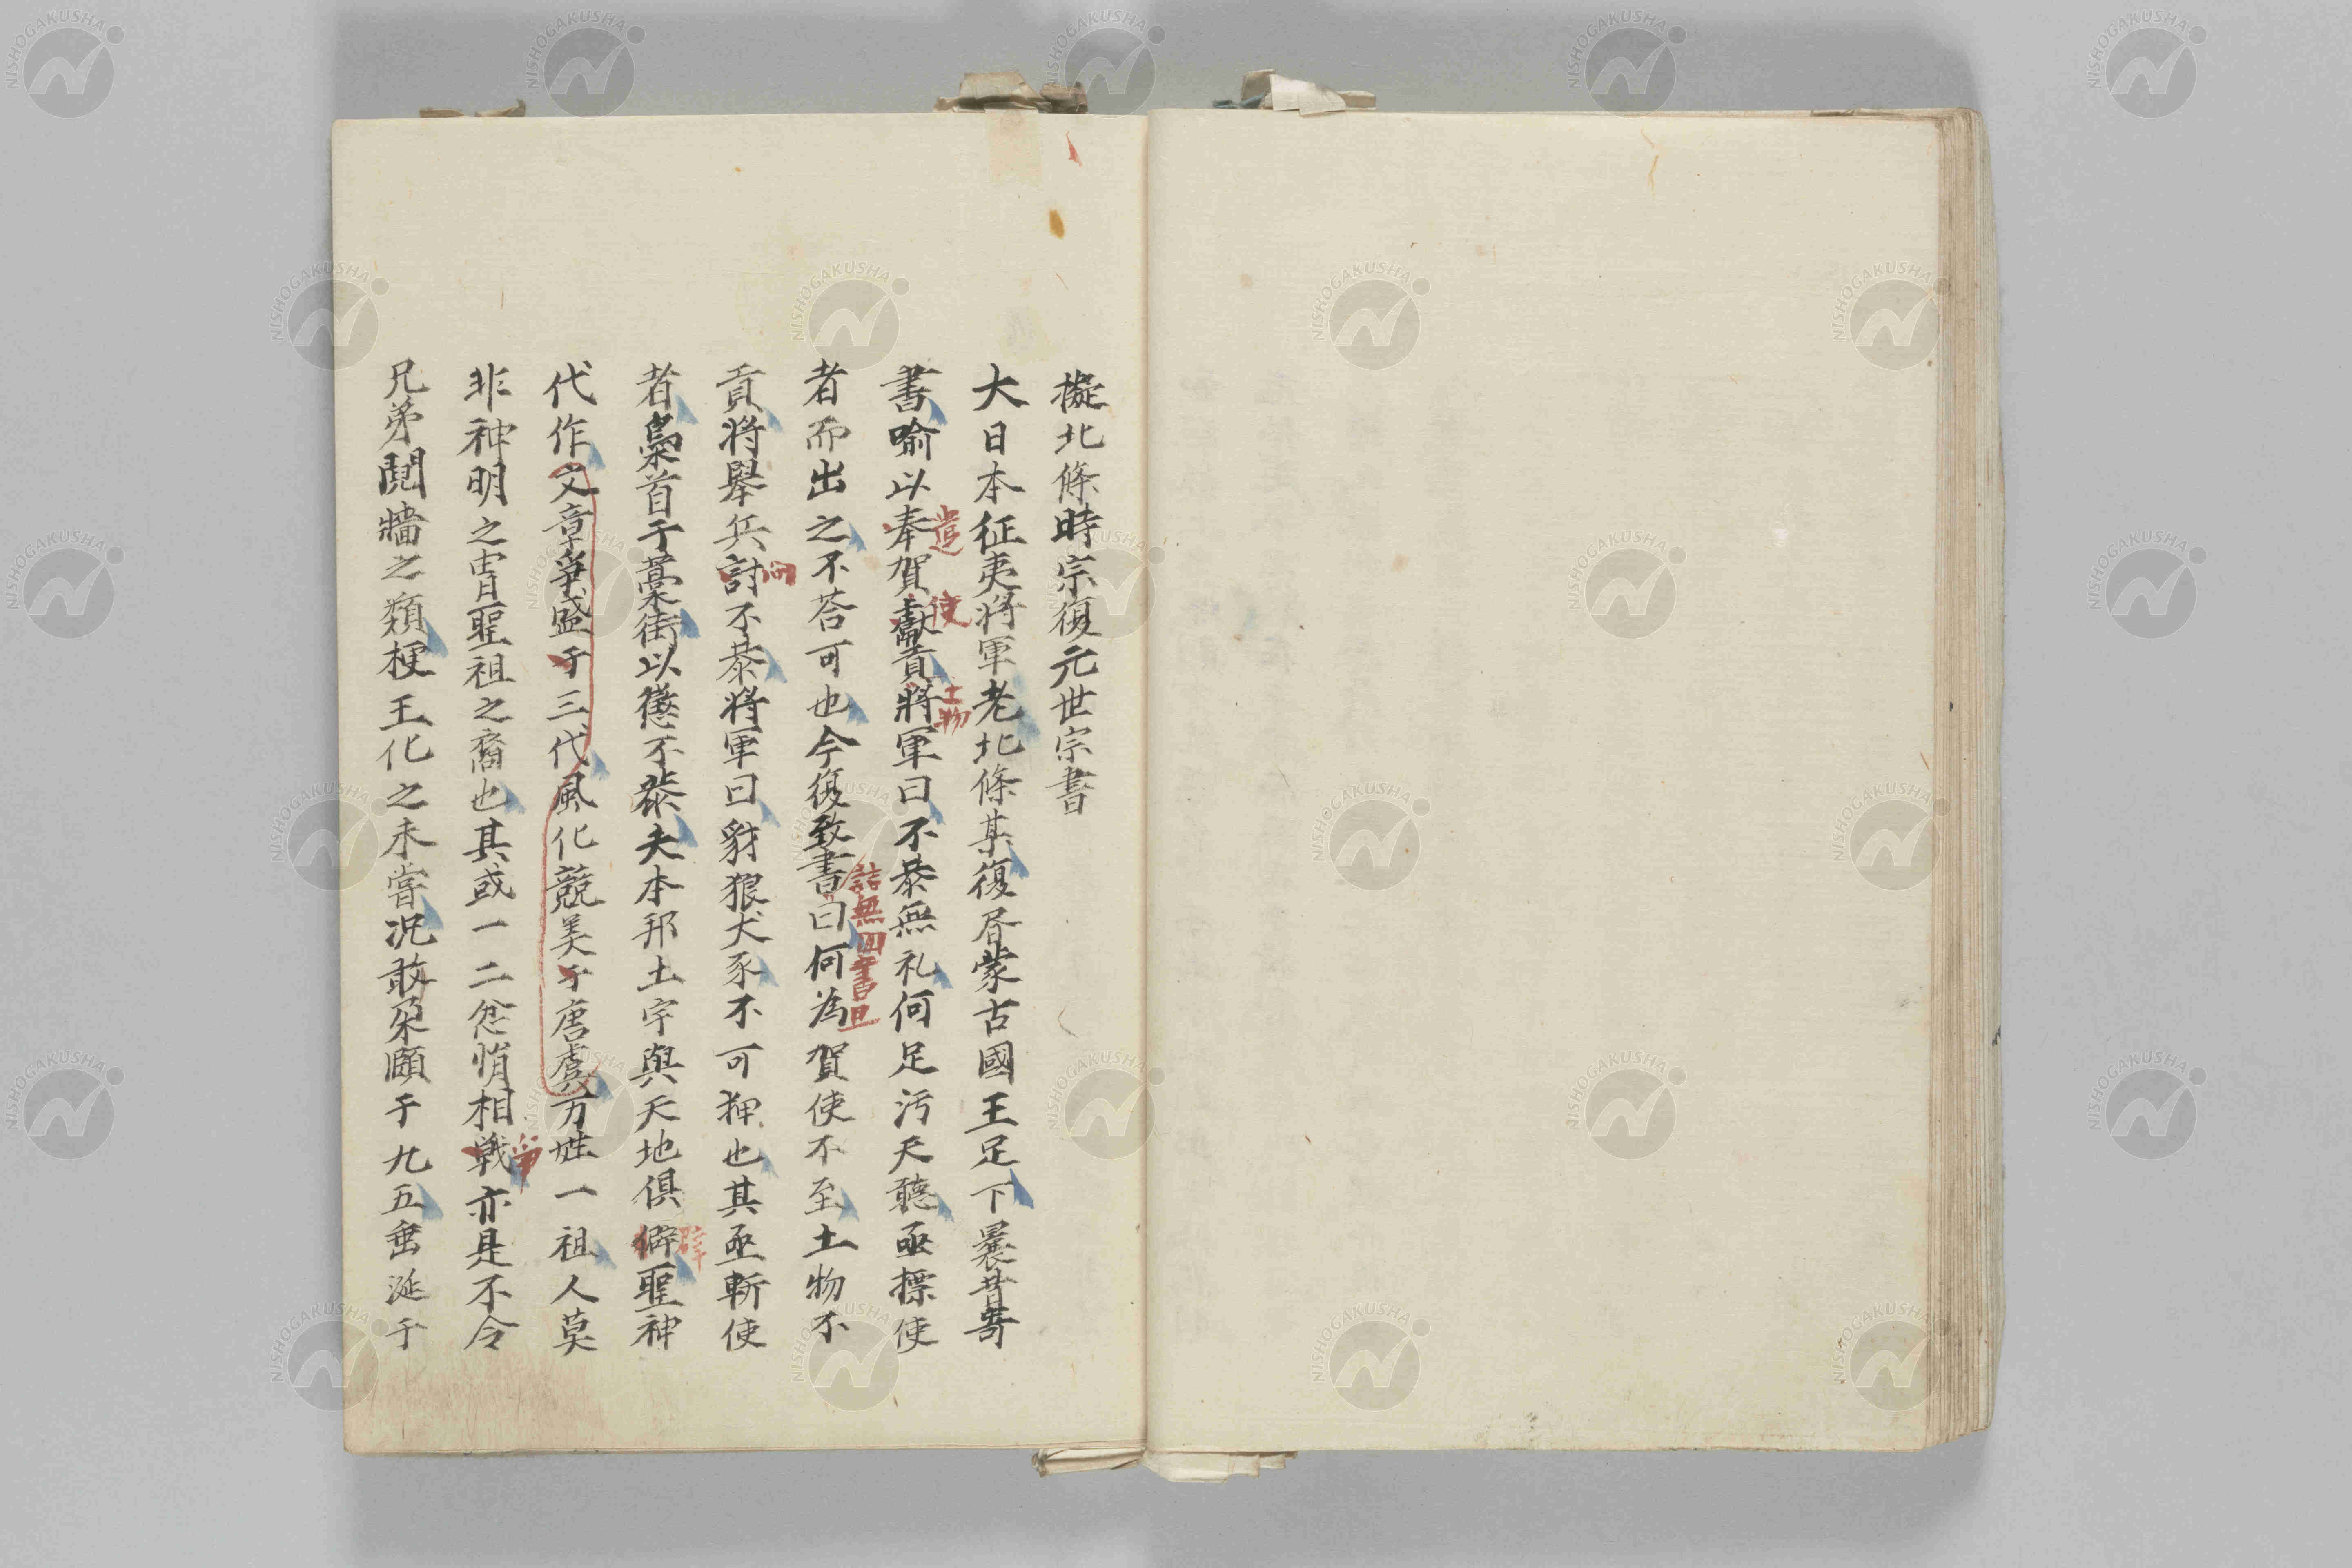 擬北條時宗復元世宗書
大日本征夷將軍老北條某復書蒙古國王足下曩昔寄
書喻以奉賀獻貢將軍曰不恭無礼何足汚天聽亟摽使
遣
使
土物
者而出之不荅可也今復致書曰何為賀使不至土物不
詰無回書且
貢將舉兵討不恭將軍曰豺狼犬豕不可狎也其亟斬使
問
者梟首于藁街以懲不恭夫本邦土宇與天地俱僻聖神
辟
代作文章爭盛于三代風化競美于唐虞万姓一祖人莫
非神明之冑聖祖之裔也其或一二忿悁相戰亦是不令
爭
兄弟鬩牆之類梗王化之未嘗况敢朶頤于九五垂涎于
NISHOGAKUSHA